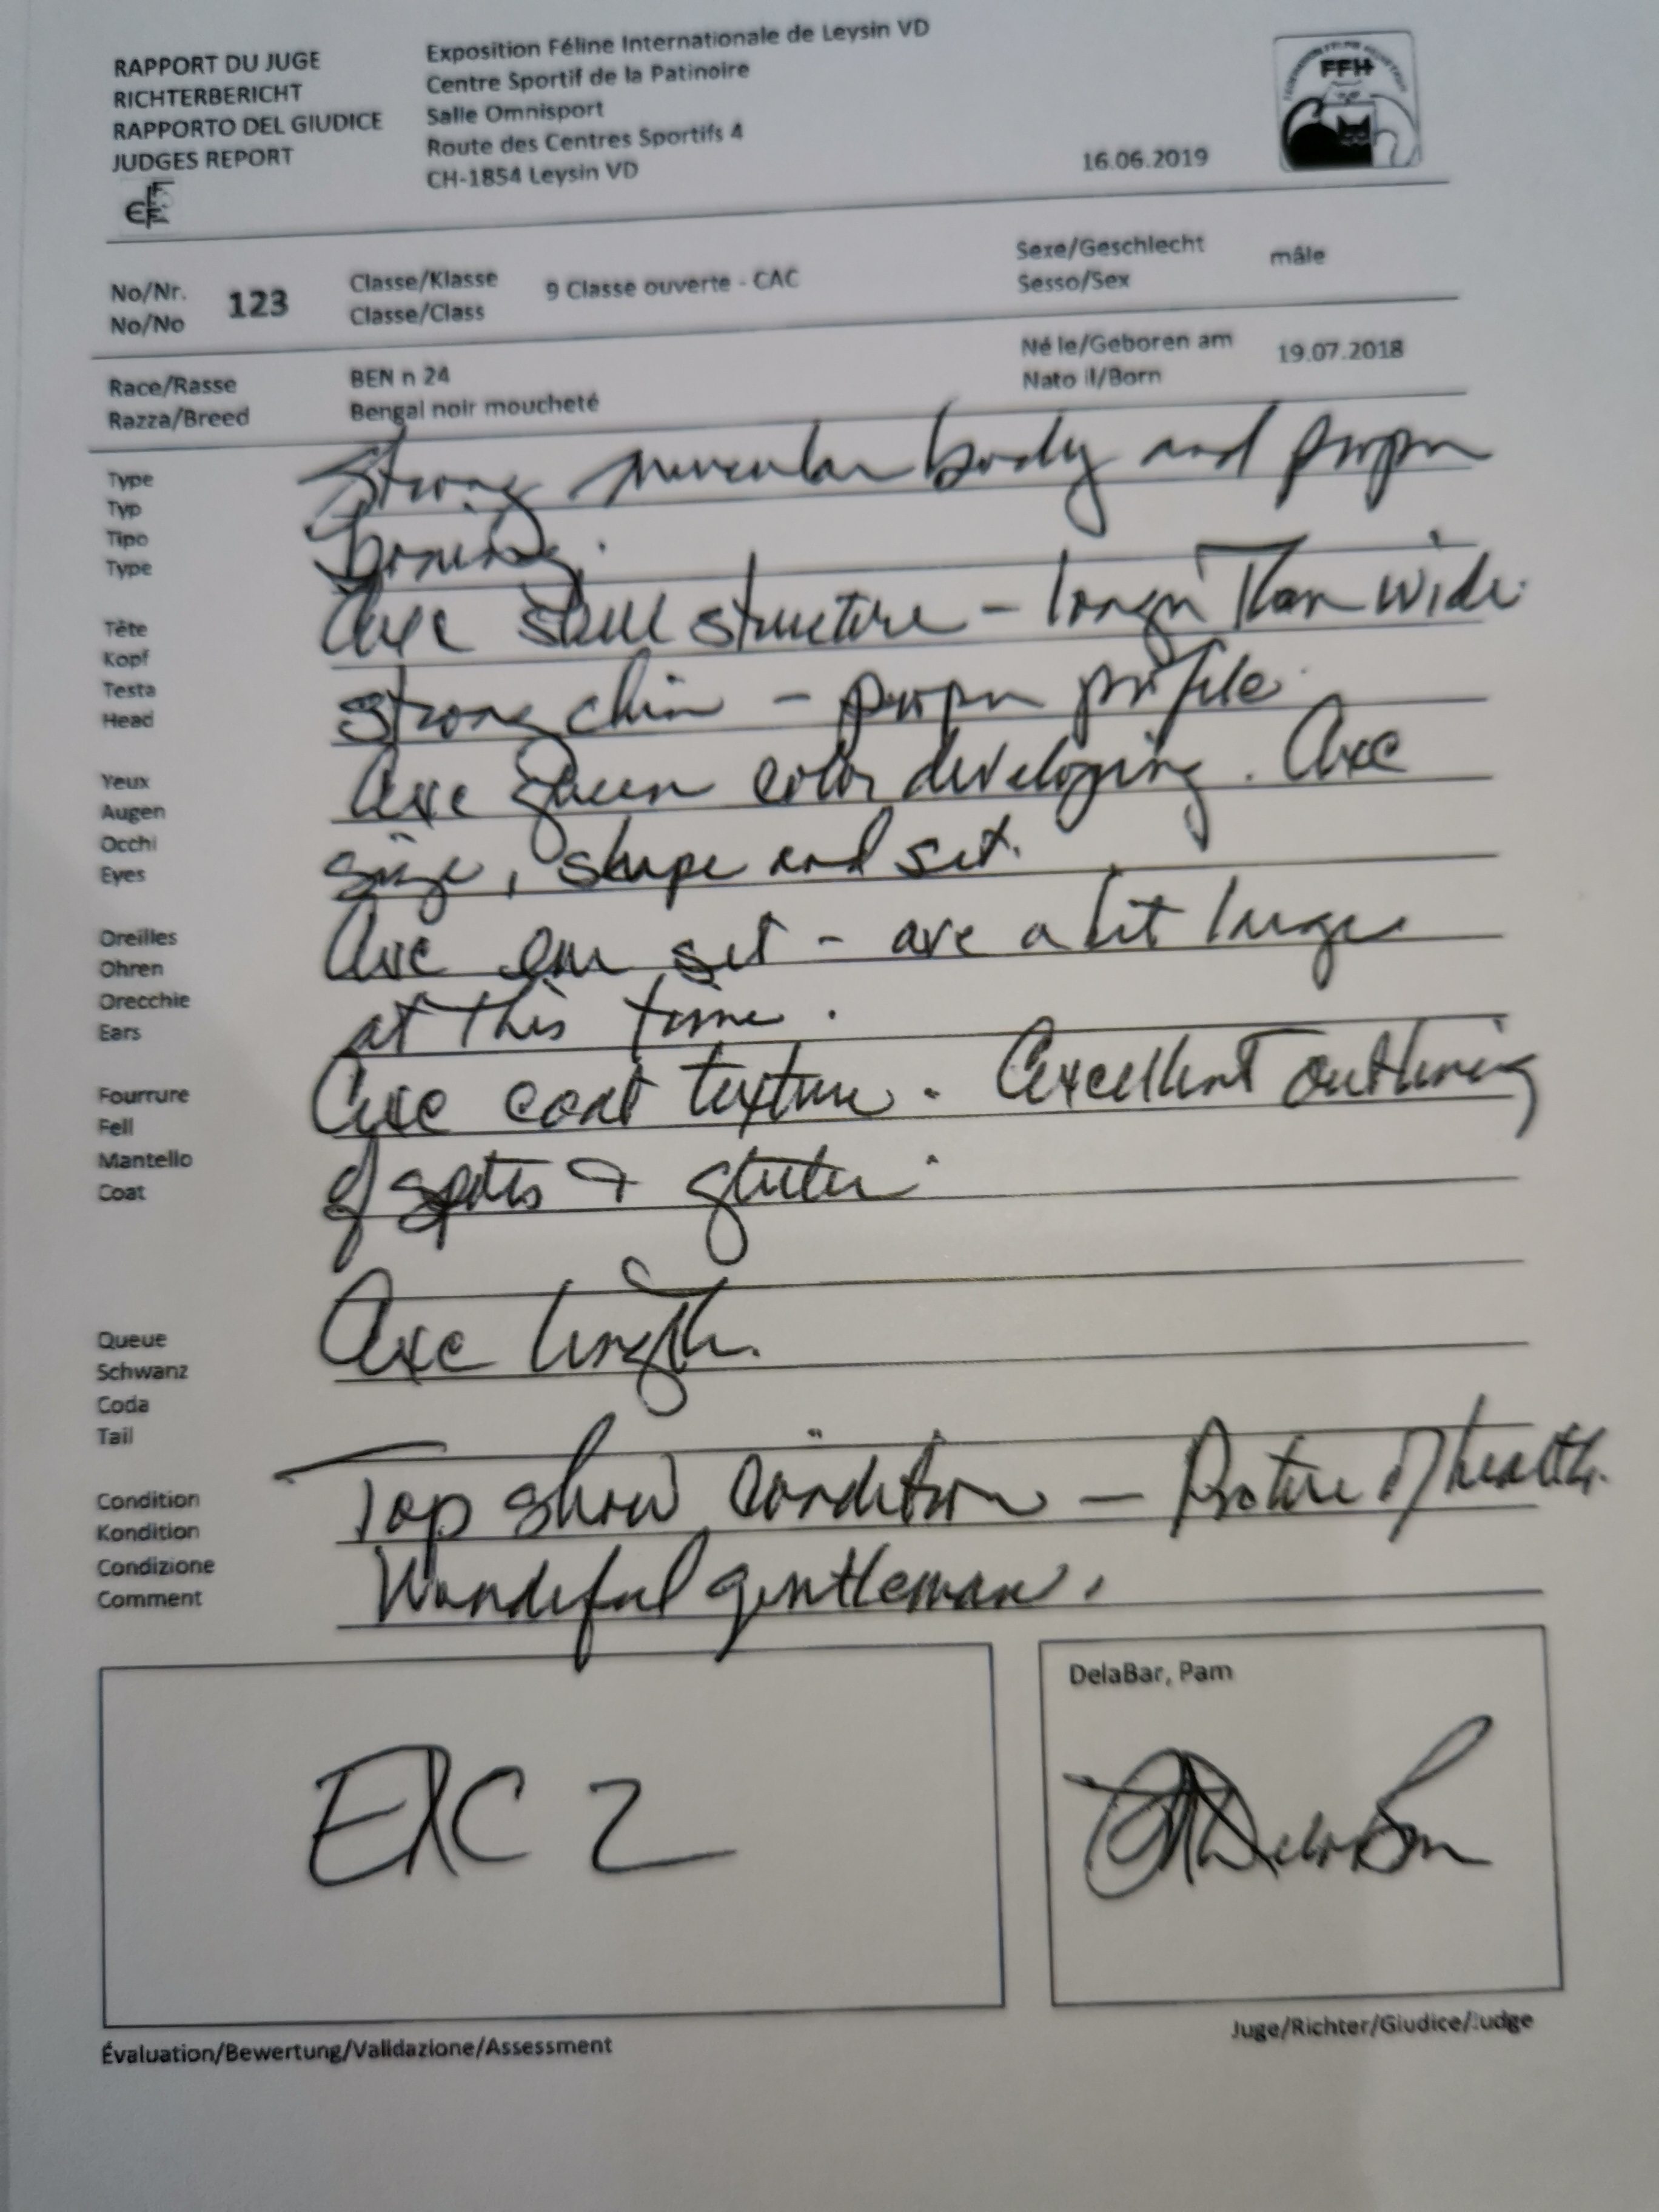 RAPPORT DU JUGE
RICHTERBERICHT
RAPPORTO DEL GIUDICE
JUDGES REPORT
Exposition Féline Internationale de Leysin VD
Centre Sportif de la Patinoire
Salle Omnisport
Route des Centres Sportifs 4
CH-1854 Leysin VD
16.06.2019
FFH
No/Nr.
No/No
123
Classe/Klasse
Classe/Class
9 Classe ouverte - CAC
Sexe/Geschlecht
Sesso/Sex
mâle
Race/Rasse
Razza/Breed
BEN n 24
Bengal noir moucheté
Né le/Geboren am
Nato il/Born
19.07.2018
Type
Typ
Tipo
Type
Strong muscular body and proper
boning.
Tête
Kopf
Testa
Head
skull structure - longer than wide.
strong chin - proper profile.
Yeux
Augen
Occhi
Eyes
green color developing.
size, shape and set.
Oreilles
Ohren
Orecchie
Ears
ear set - are a bit large
at this time.
Fourrure
Fell
Mantello
Coat
coat texture. Excellent outlining
of spots & glitter.
Queue
Schwanz
Coda
Tail
length.
Condition
Kondition
Condizione
Comment
Top show condition - Picture of health.
Wonderful gentleman.
EXC 2
DelaBar, Pam
Évaluation/Bewertung/Validazione/Assessment
Juge/Richter/Giudice/Judge